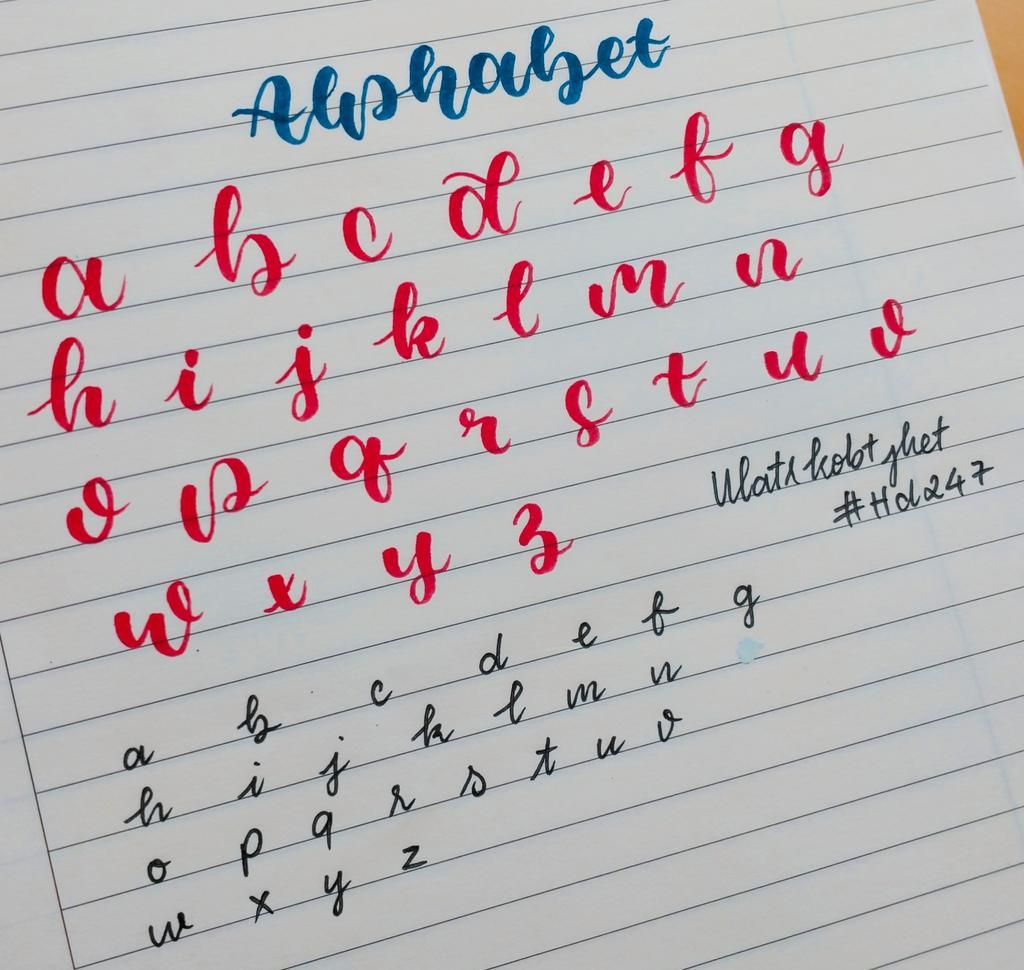 Alphabet
a b c d e f g
h i j k l m n
o p q r s t u v
w x y z
#Hd247
a b c d e f g
h i j k l m n
o p q r s t u v
w x y z